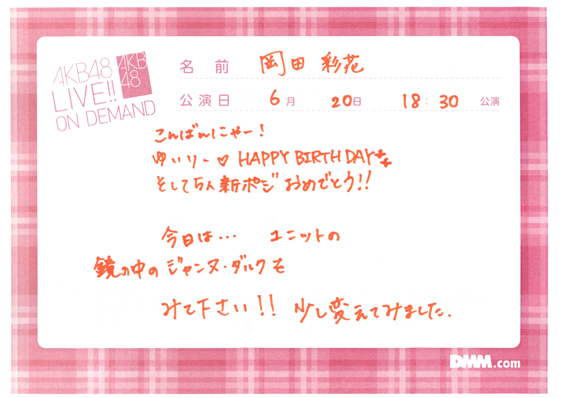 AKB48
LIVE!!
ON DEMAND
AKB
48
名前 岡田 彩花
公演日 6月 20日 18:30 公演
こんばんにゃー!
ゆいりー♡ HAPPY BIRTHDAY
そして 新ポジ おめでとう!!
今日は… ユニットの
鏡の中のジャンヌ・ダルクを
みて下さい!! 少し変えてみました.
DMM.com